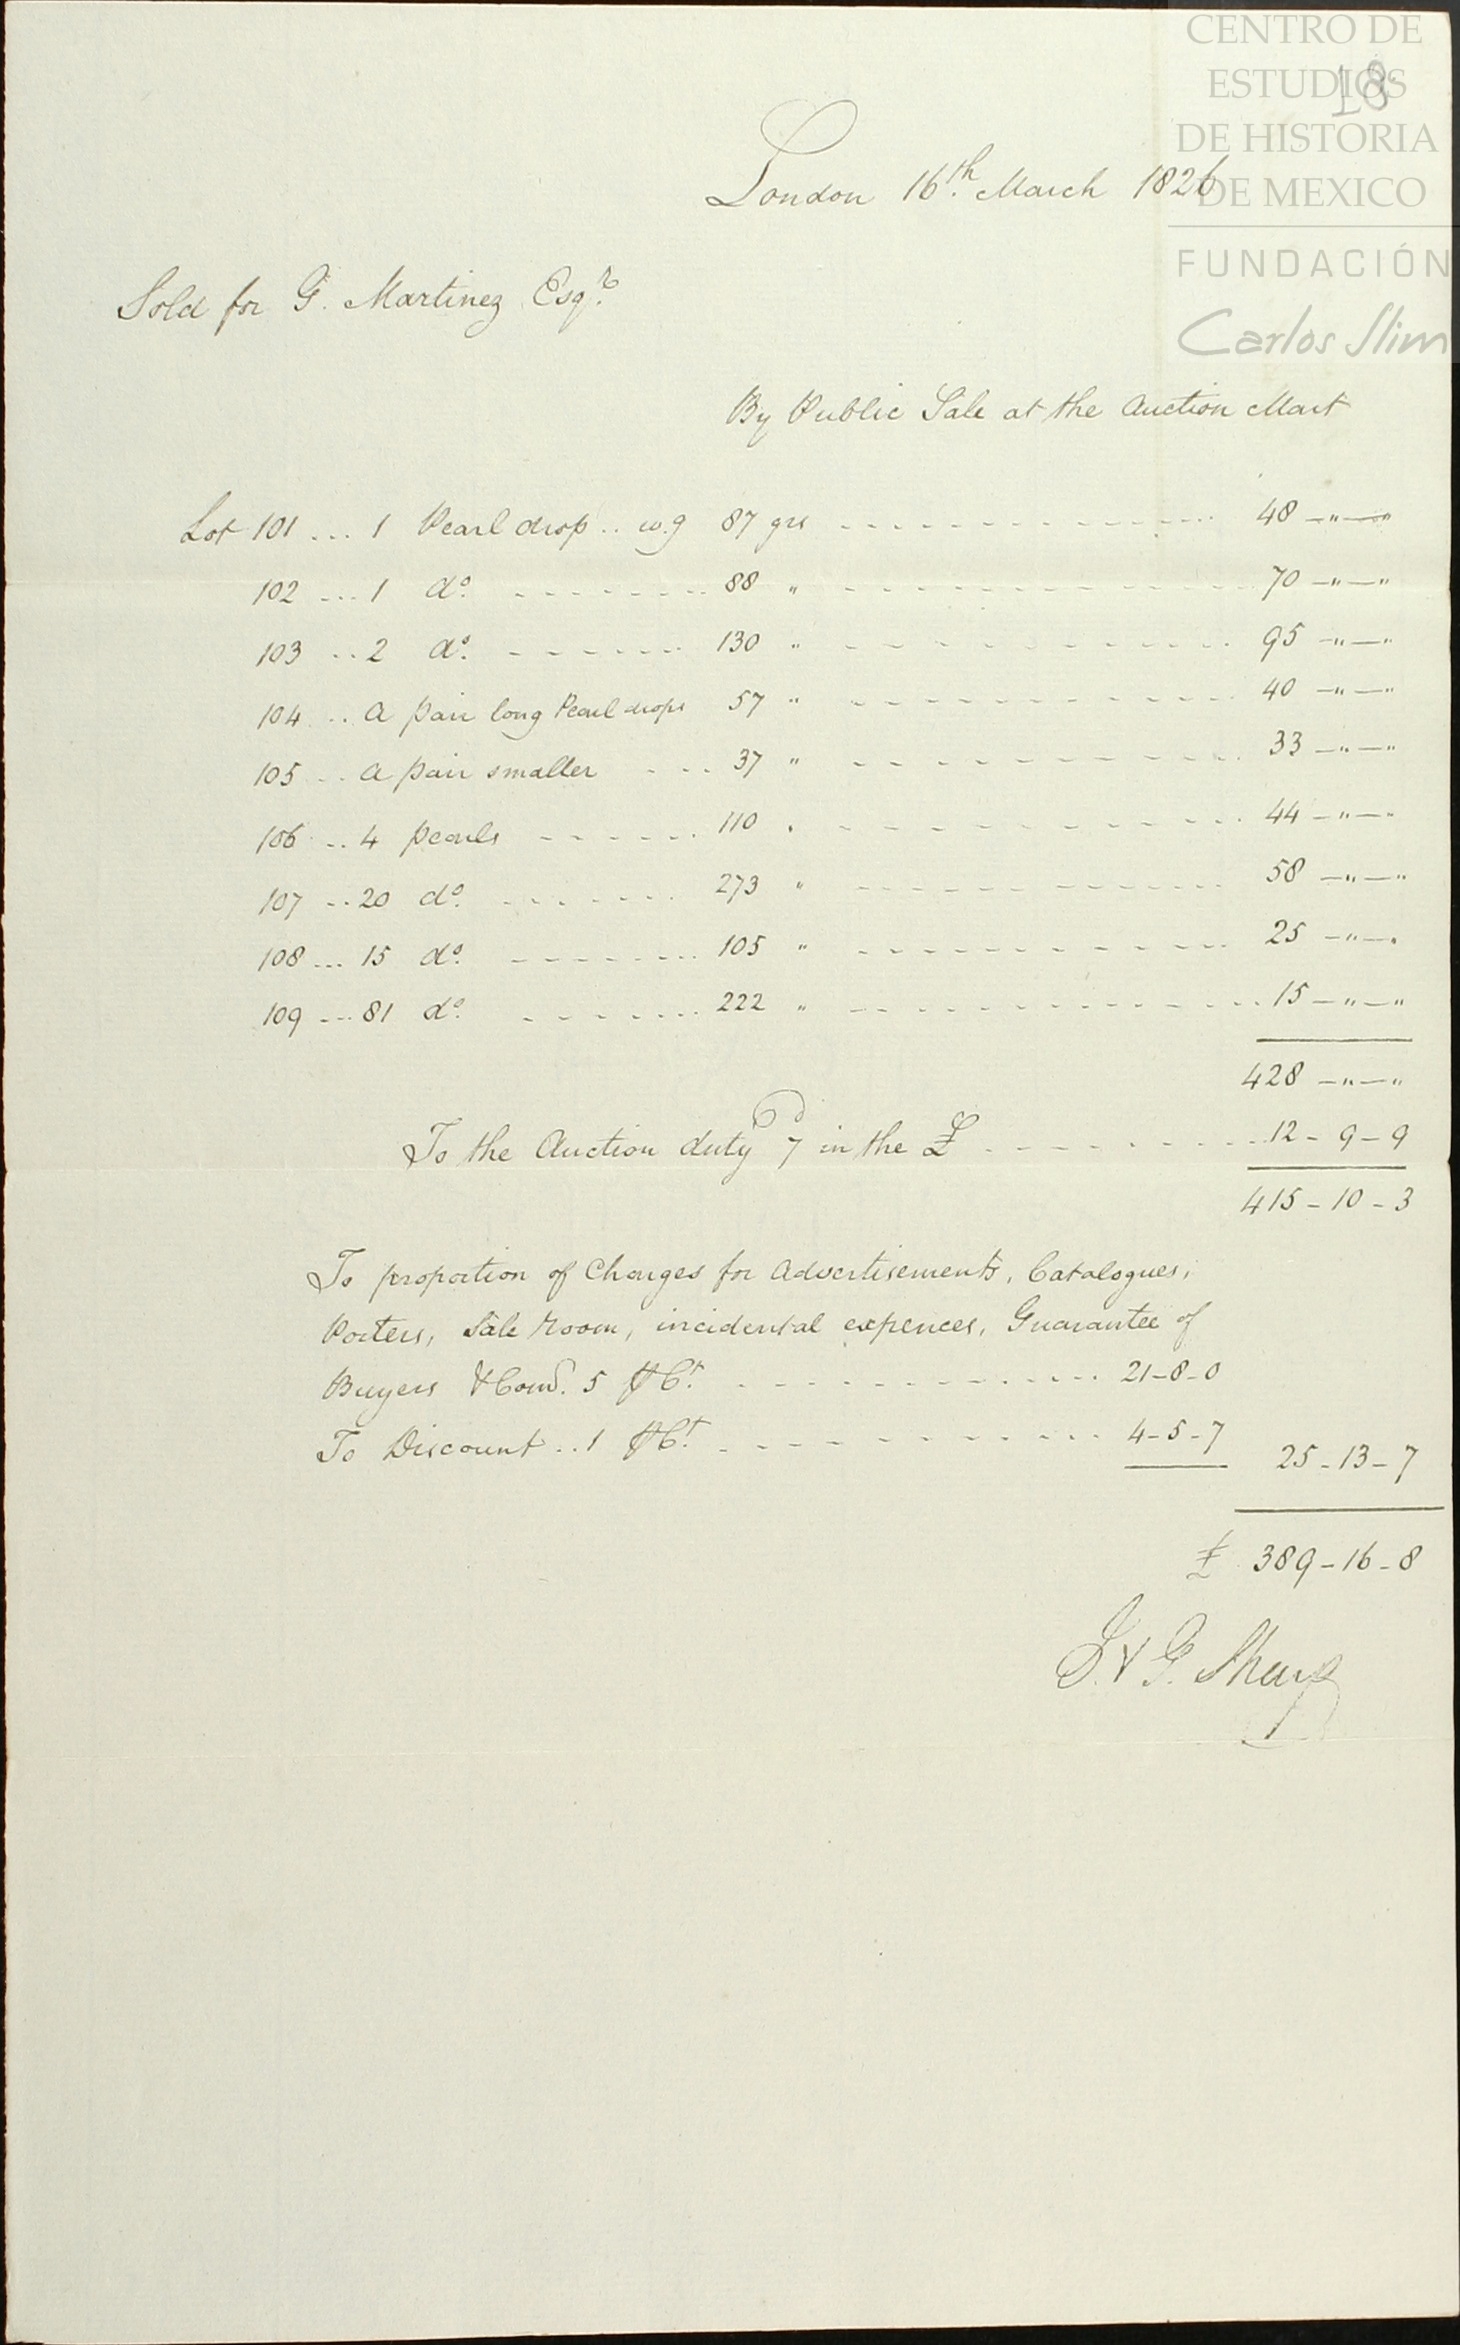 CENTRO DE
ESTUDIOS
DE HISTORIA
DE MEXICO
FUNDACIÓN
Carlos Slim
18
London 16th. March 1826
Sold for G. Martinez Esqre.
By Public Sale at the Auction Mart
Lot 101 ... 1 Pearl drop .. w.g 87 grs ------------- 48 -"-"
102 ... 1 do. -------- 88 " ------------- 70 -"-"
103 .. 2 do. ------ 130 " ------------- 95 -"-"
104 .. A pair long Pearl drops 57 " ------------- 40 -"-"
105 .. A pair smaller --- 37 " ------------- 33 -"-"
106 .. 4 pearls ------ 110 " ------------- 44 -"-"
107 .. 20 do. ------ 273 " ------------- 58 -"-"
108 ... 15 do. ------- 105 " ------------- 25 -"-"
109 ... 81 do. ------- 222 " ------------- 15 -"-"
428 -"-"
To the Auction duty 7d in the £ --------- 12 - 9 - 9
415 - 10 - 3
To proportion of Charges for Advertisements, Catalogues,
Porters, Sale Room, incidental expences, Guarantee of
Buyers & Comn. 5 ⅌ Ct. ------------ 21 - 8 - 0
To Discount .. 1 ⅌ Ct. ------------ 4 - 5 - 7 25 - 13 - 7
£ 389 - 16 - 8
& G. Sharp